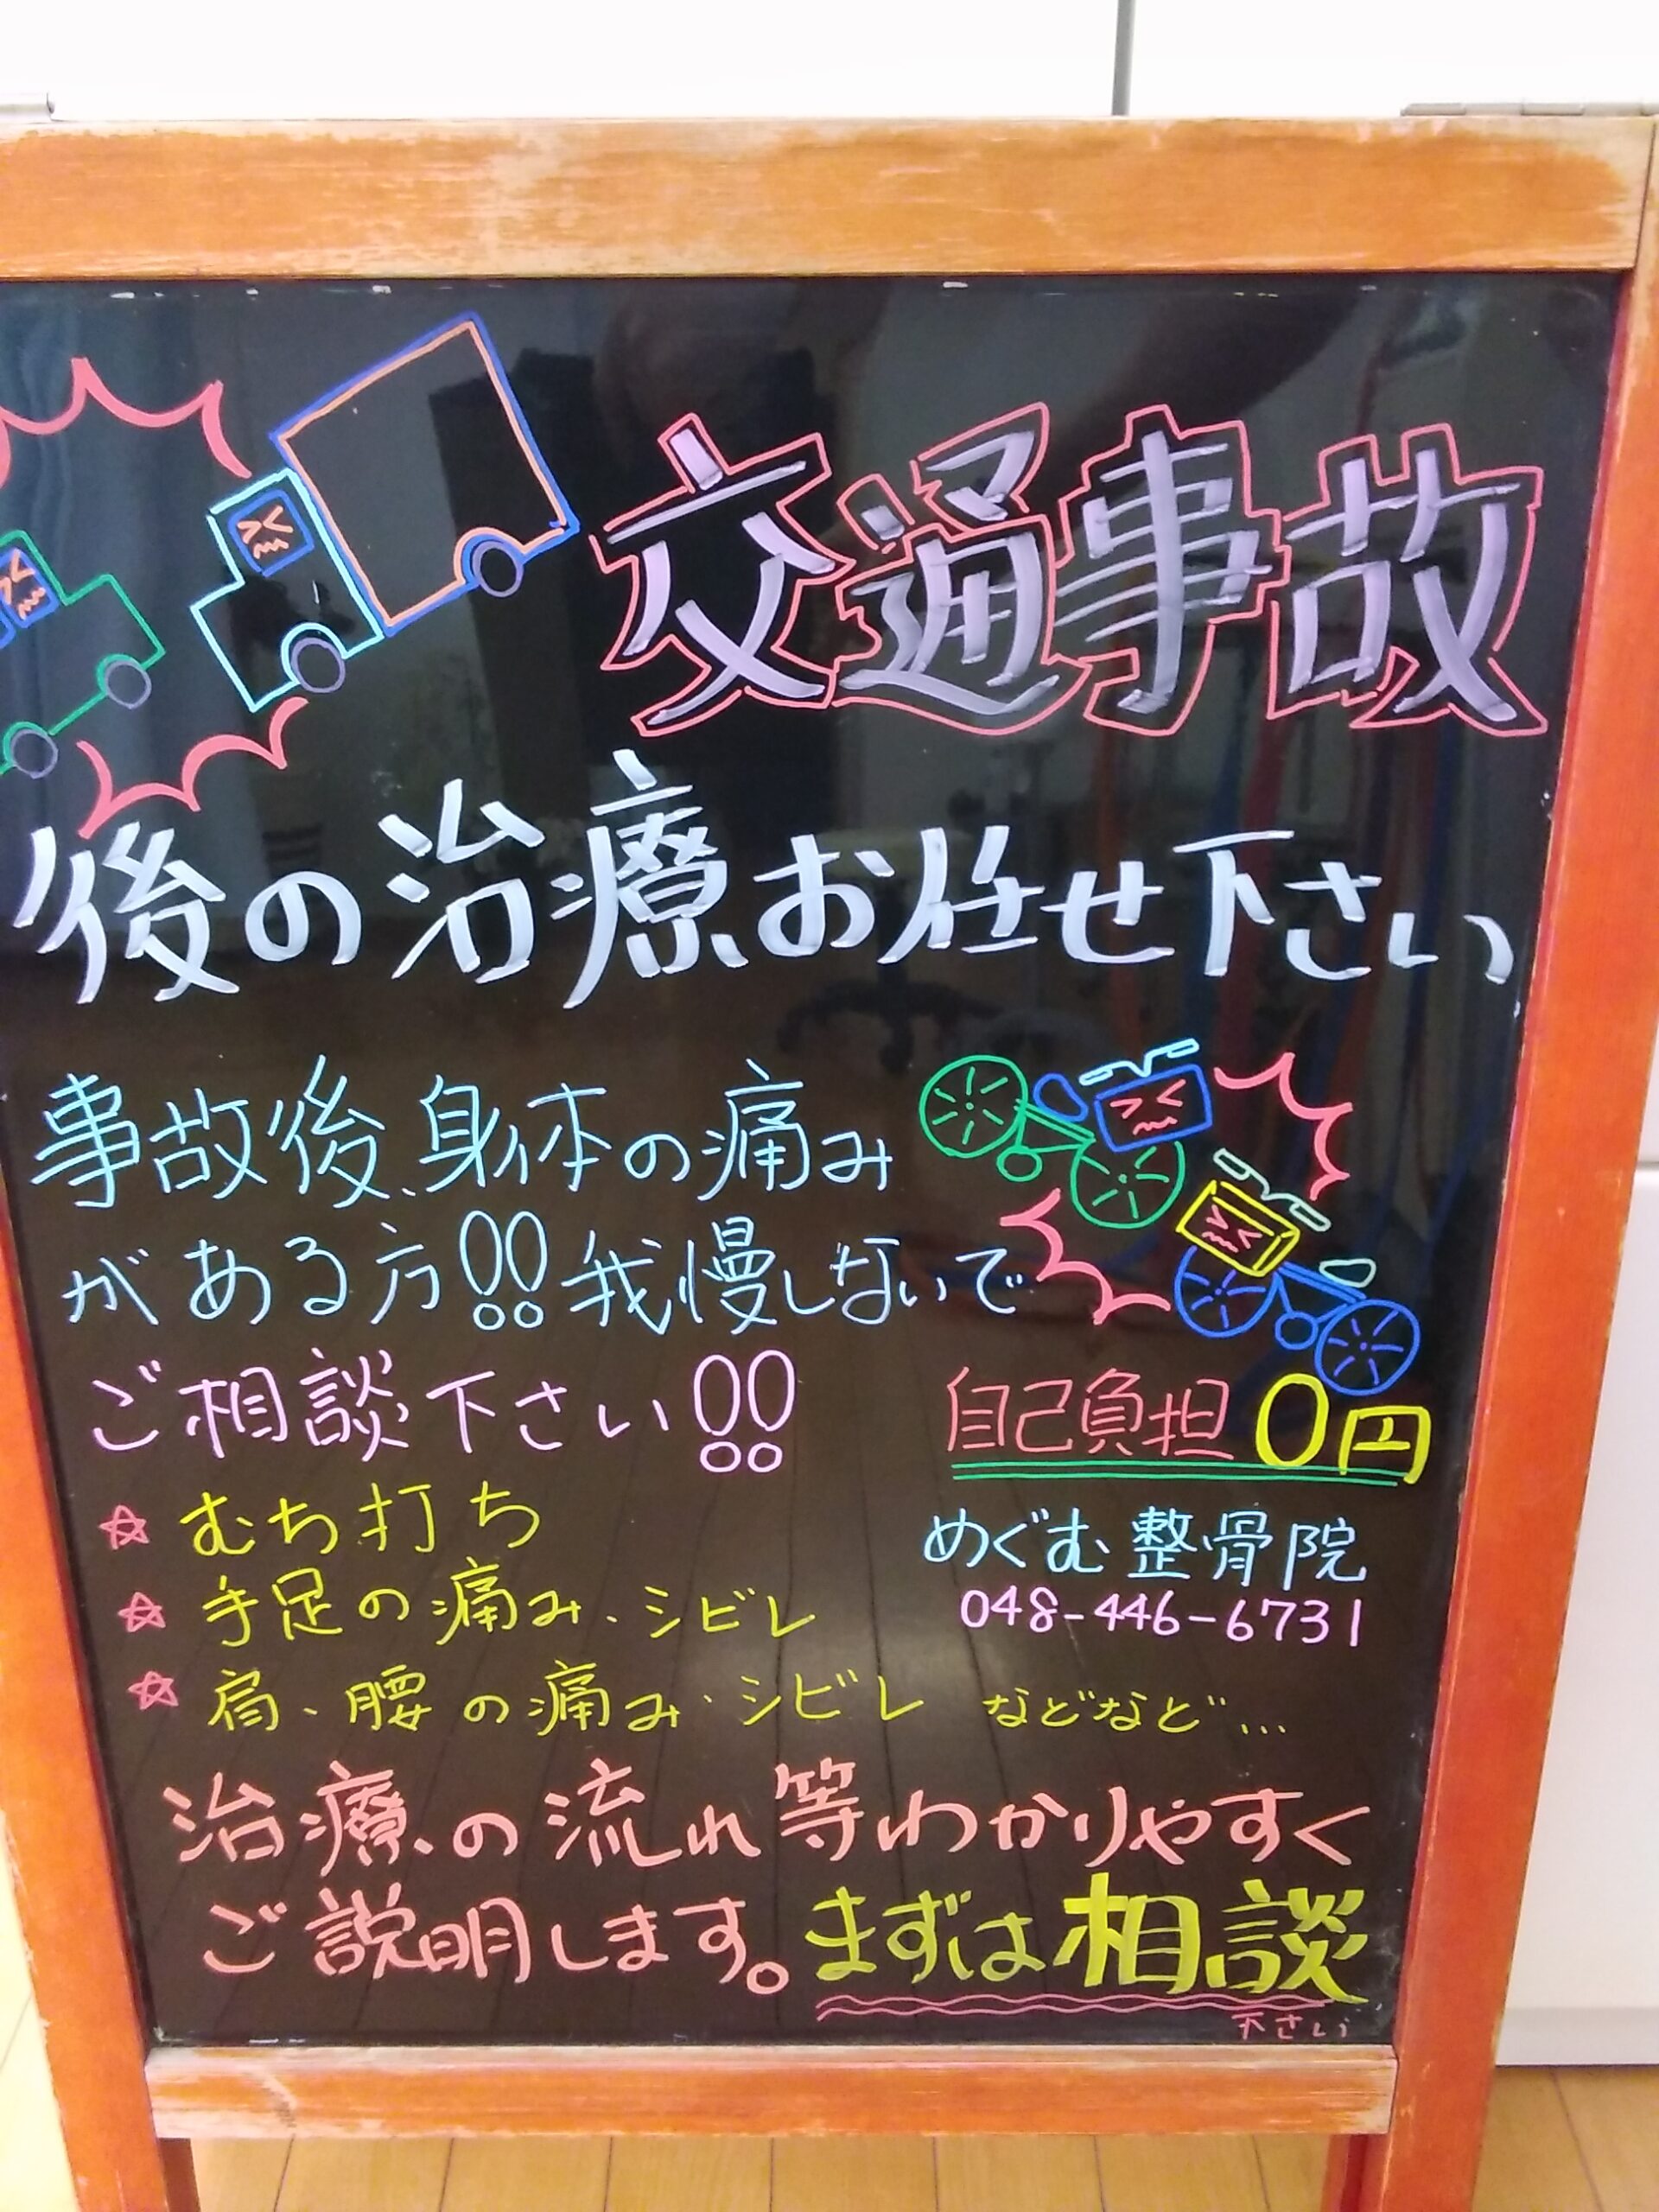 交通事故
後の治療お任せ下さい
事故後、身体の痛み
がある方!!我慢しないで
ご相談下さい!!
自己負担0円
☆ むち打ち
☆ 手足の痛み、シビレ
☆ 肩、腰の痛み・シビレ などなど…
めぐむ整骨院
048-446-6731
治療の流れ等わかりやすく
ご説明します。まずは相談
下さい